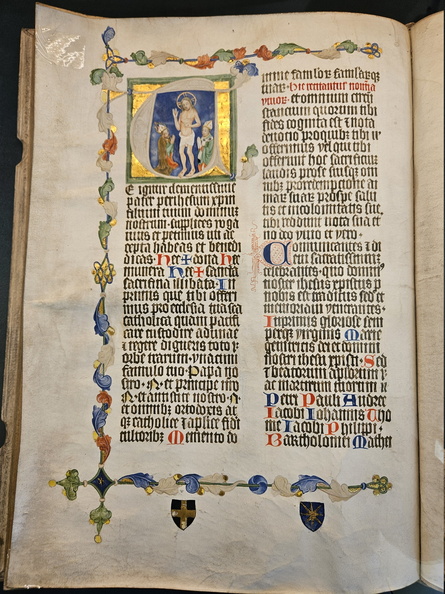 E igitur clementissime
pater per ihesum xpm
filium tuum dominum
nostrum supplices roga
mus et petimus uti ac
cepta habeas et benedi
cas. Hec dona Hec
munera Hec sancta
sacrificia illibata. In
primis que tibi offeri
mus pro ecclesia tua sca
catholica quam pacifi
care custodire adunare
et regere digneris toto
orbe terrarum una cum
famulo tuo Papa no
stro N et principe nro
N et antistite nostro N
et omnibus orthodoxis atq
catholice et aplice fidei
cultoribus Memento do
mine famulor famularq
tuar
et omnium circu
stancium quorum tibi
fides cognita est et nota
devotio pro quibus tibi
offerimus vel qui tibi
offerunt hoc sacrificium
laudis pro se suisque omni
bus pro redemptione ani
mar suar pro spe salu
tis et incolumitatis sue
tibi reddunt vota sua eter
no deo vivo et vero
Communicantes et di
em
celebrantes quo domin
noster ihesus xpistus p
nobis est traditus sed et
memoriam venerantes
Inprimis gloriose sem
per virginis Marie
genitricis dei et domini
nostri ihesu xpisti Sed
et beatorum apostolorum
ac martirum tuorum
Petri Pauli Andree
Iacobi Iohannis Tho
me Iacobi Philippi
Bartholomei Mathei